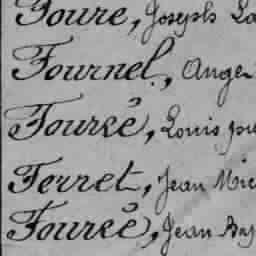 Foure, Joseph
Fournel, Ange
Fourré, Louis
Ferret, Jean Mic
Fourré, Jean Bap